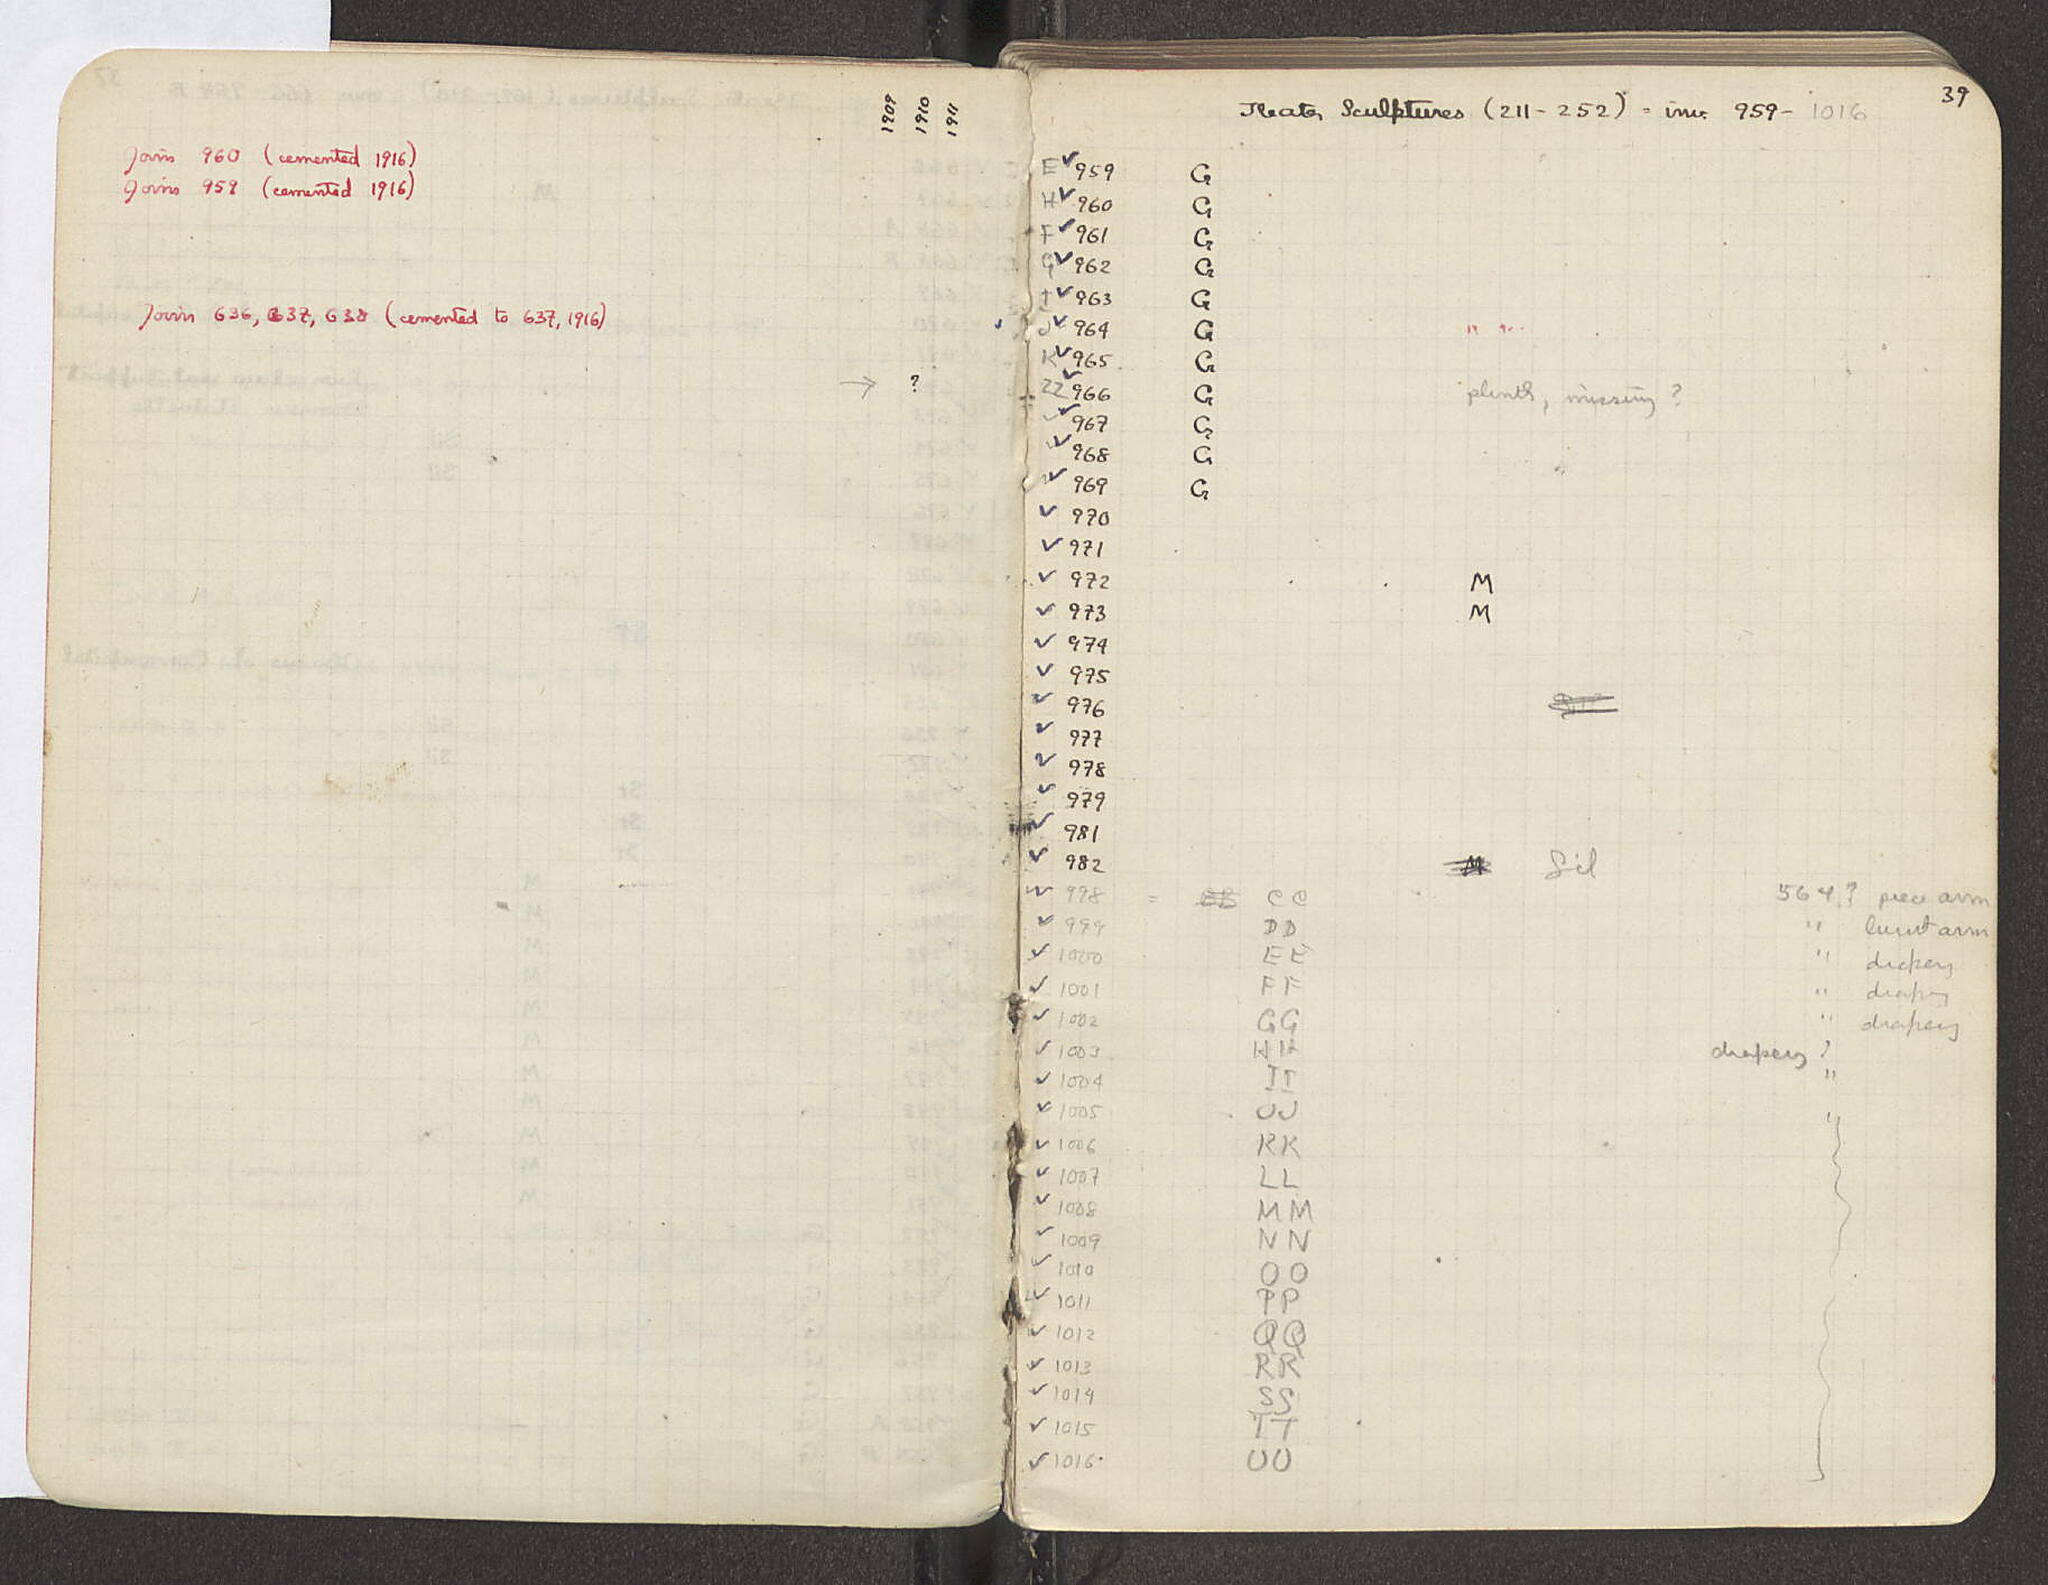 1909 1910 1911
Joins 960 (cemented 1916)
Joins 959 (cemented 1916)
Joins 636, 637, 638 (cemented to 637, 1916)
→ ?
39
Theater Sculptures (211-252) = inv. 959-1016
E ✓ 959 G
H ✓ 960 G
F ✓ 961 G
G ✓ 962 G
I ✓ 963 G
J ✓ 964 G
K ✓ 965 G
ZZ ✓ 966 G plinth, missing?
✓ 967 G
✓ 968 G
✓ 969 G
✓ 970
✓ 971
✓ 972 M
✓ 973 M
✓ 974
✓ 975
✓ 976
✓ 977
✓ 978
✓ 979
✓ 981
✓ 982 M Sil
✓ 998 = CC 564? piece arm
✓ 999 DD " burnt arm
✓ 1000 EE " drapery
✓ 1001 FF " drapery
✓ 1002 GG " drapery
✓ 1003 HH drapery ?
✓ 1004 II "
✓ 1005 JJ "
✓ 1006 KK
✓ 1007 LL
✓ 1008 MM
✓ 1009 NN
✓ 1010 OO
✓ 1011 PP
✓ 1012 QQ
✓ 1013 RR
✓ 1014 SS
✓ 1015 TT
✓ 1016 UU